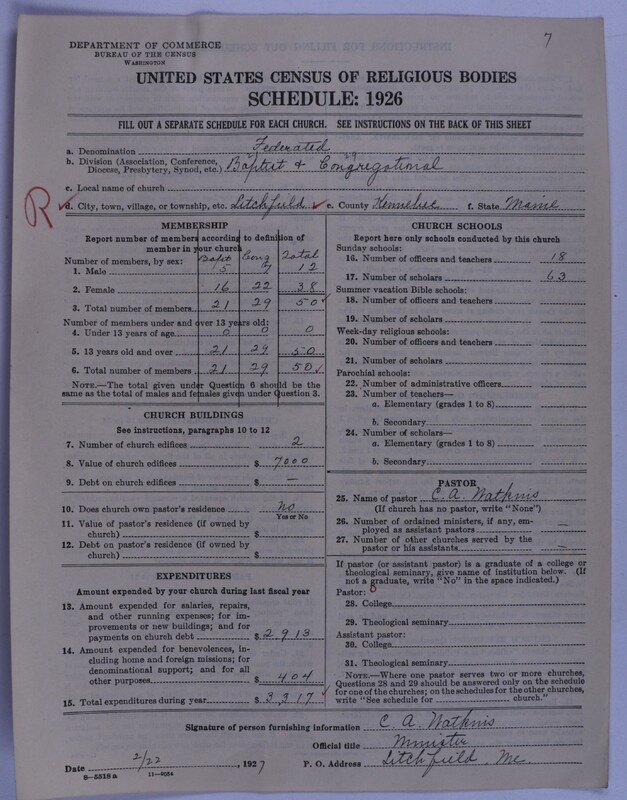 7
DEPARTMENT OF COMMERCE
BUREAU OF THE CENSUS
WASHINGTON
UNITED STATES CENSUS OF RELIGIOUS BODIES
SCHEDULE: 1926
FILL OUT A SEPARATE SCHEDULE FOR EACH CHURCH. SEE INSTRUCTIONS ON THE BACK OF THIS SHEET
a. Denomination Federated
b. Division (Association, Conference, Diocese, Presbytery, Synod, etc.) Baptist & Congregational
c. Local name of church
R
d. City, town, village, or township, etc. Litchfield e. County Kennebec f. State Maine
MEMBERSHIP
Report number of members according to definition of
member in your church
Number of members, by sex: Bapt Cong Total
1. Male 5 7 12
2. Female 16 22 38
3. Total number of members 21 29 50
Number of members under and over 13 years old:
4. Under 13 years of age 0 0 0
5. 13 years old and over 21 29 50
6. Total number of members 21 29 50
NOTE.—The total given under Question 6 should be the
same as the total of males and females given under Question 3.
CHURCH BUILDINGS
See instructions, paragraphs 10 to 12
7. Number of church edifices 2
8. Value of church edifices $ 7000
9. Debt on church edifices $ —
10. Does church own pastor's residence No
Yes or No
11. Value of pastor's residence (if owned by
church) $
12. Debt on pastor's residence (if owned by
church) $
EXPENDITURES
Amount expended by your church during last fiscal year
13. Amount expended for salaries, repairs,
and other running expenses; for im-
provements or new buildings; and for
payments on church debt $ 2913
14. Amount expended for benevolences, in-
cluding home and foreign missions; for
denominational support; and for all
other purposes $ 404
15. Total expenditures during year $ 3317
CHURCH SCHOOLS
Report here only schools conducted by this church
Sunday schools:
16. Number of officers and teachers 18
17. Number of scholars 63
Summer vacation Bible schools:
18. Number of officers and teachers
19. Number of scholars
Week-day religious schools:
20. Number of officers and teachers
21. Number of scholars
Parochial schools:
22. Number of administrative officers
23. Number of teachers—
a. Elementary (grades 1 to 8)
b. Secondary
24. Number of scholars—
a. Elementary (grades 1 to 8)
b. Secondary
PASTOR
25. Name of pastor C. A. Watkins
(If church has no pastor, write "None")
26. Number of ordained ministers, if any, em-
ployed as assistant pastors —
27. Number of other churches served by the
pastor or his assistants —
If pastor (or assistant pastor) is a graduate of a college or
theological seminary, give name of institution below. (If
not a graduate, write "No" in the space indicated.)
Pastor:
28. College
29. Theological seminary
Assistant pastor:
30. College
31. Theological seminary
NOTE.—Where one pastor serves two or more churches,
Questions 28 and 29 should be answered only on the schedule
for one of the churches; on the schedules for the other churches,
write "See schedule for church."
Signature of person furnishing information C. A. Watkins
Official title Minister
Date 2/22, 1927 P. O. Address Litchfield, Me.
8—5518 a 11—9054